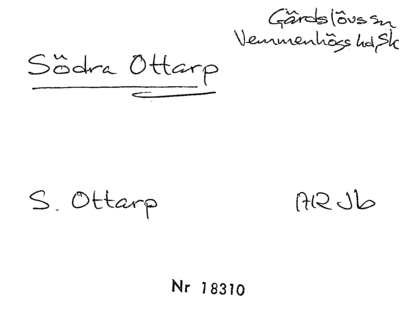 Gärdslövs sn
Vemmenhögs hd, Sk
Södra Ottarp
S. Ottarp
ARJb
Nr 18310